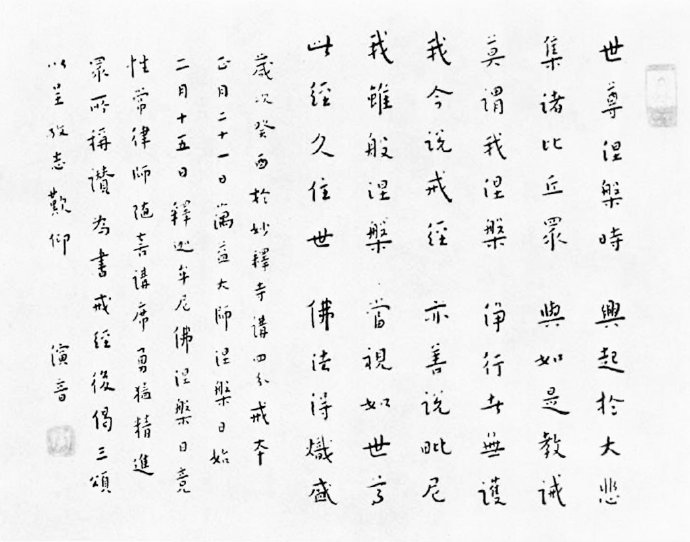 世尊涅槃時 興起於大悲
集諸比丘眾 與如是教誡
莫謂我涅槃 淨行者無護
我今說戒經 亦善說毗尼
我雖般涅槃 當視如世尊
此經久住世 佛法得熾盛
歲次癸酉於妙釋寺講四分戒本
正月二十一日蕅益大師涅槃日始
二月十五日釋迦牟尼佛涅槃日竟
性常律師隨喜講席勇猛精進
眾所稱讚為書戒經後偈三頌
以呈 志歎仰 演音